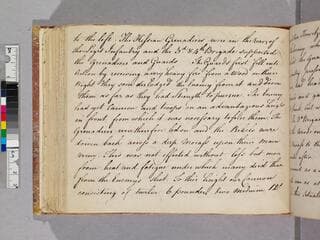 to the left. The Hessian Grenadiers were in the rear of
the Light Infantry and the 3d & 4th Brigade supported
the Grenadiers and Guards The Guards first fell into
action by receiving a very heavy fire from a Wood on their
Right they soon dislodged the Enemy from it and drove
them as far as they had strength to pursue. The Enemy
had got Cannon and troops on an advantageous height
in front from which it was necessary to force them. The
Grenadiers were therefore and the Rebels were
driven back across a deep Morass upon their main
Army. This was not effected without loss but more
from heat and fatigue under which many died than
from the Enemys Shot. To this height our Cannon
consisting of twelve 6 pounders, two medium 12d